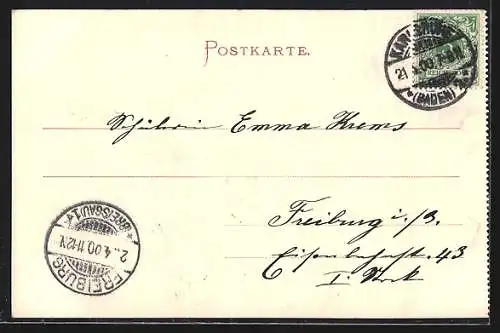 POSTKARTE.
KARLSRUHE
21.4.00.7-8N.
*(BADEN)2*
Schülerin Emma Krems
Freiburg i./B.
Eisenbahnst. 43
I. Stock
FREIBURG
2..4.00.11-12V.
*(BREISGAU)1*